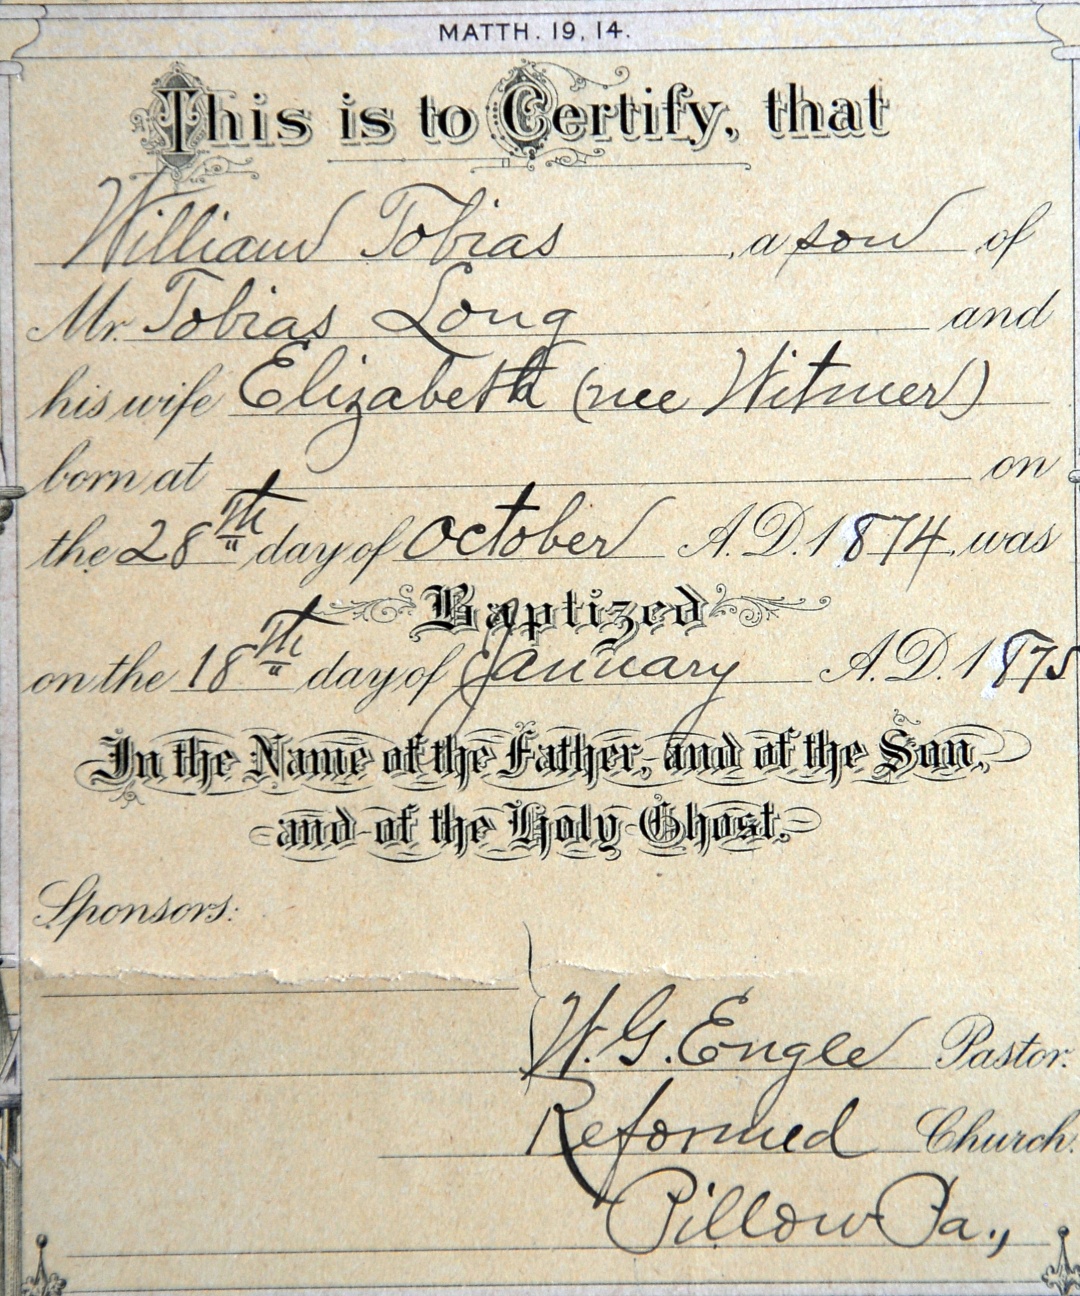 MATTH. 19, 14.
This is to Certify, that
William Tobias, a son of
Mr. Tobias Long and
his wife Elizabeth (nee Witmer)
born at on
the 28th day of October A.D. 1874, was
Baptized
on the 18th day of January A.D. 1875
In the Name of the Father, and of the Son,
and of the Holy Ghost.
Sponsors:
W. G. Engle Pastor.
Reformed Church.
Pillow Pa.,